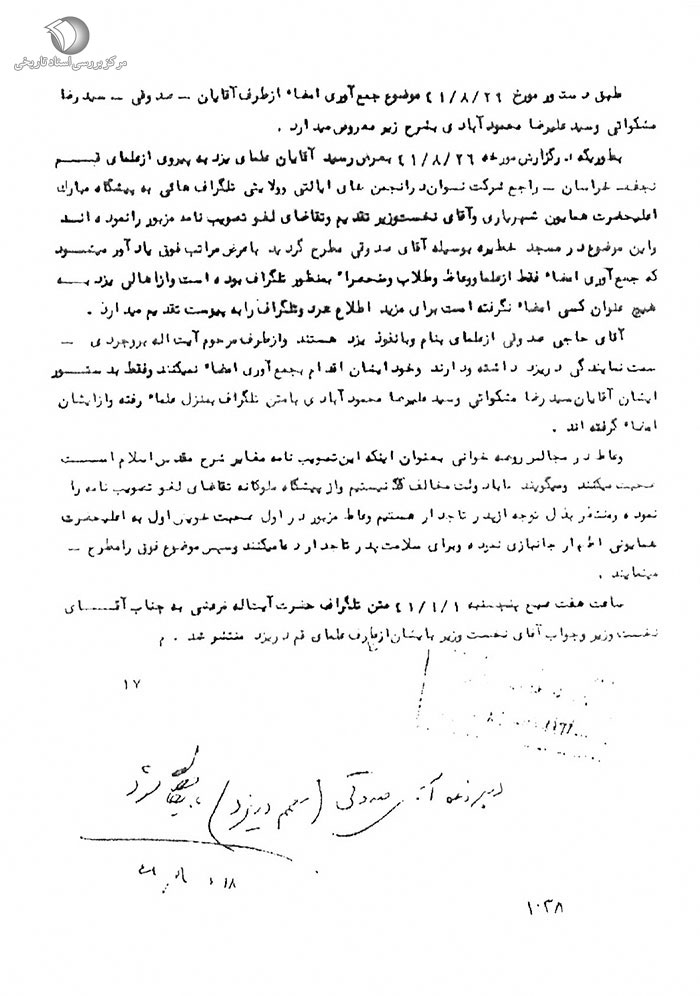 مرکز بررسی اسناد تاریخی
طبق دستور مورخ ۴۱/۸/۲۶ موضوع جمع آوری امضاء از طرف آقایان – صدوقی – سید رضا
مشکواتی وسید علیرضا محمود آبادی بشرح زیر معروض میدارد .
بطوریکه در گزارش مورخه ۴۱/۸/۲۶ بعرض رسید آقایان علمای یزد به پیروی از علمای قم
نجف خراسان – راجع شرکت نسوان در انجمن های ایالتی وولایتی تلگراف هائی به پیشگاه مبارک
اعلیحضرت همایون شهریاری وآقای نخست وزیر تقدیم وتقاضای لغو تصویب نامه مزبور رانموده اند
واین موضوع در مسجد حظیره بوسیله آقای صدوقی مطرح گردید باعرض مراتب فوق یاد آور میشود
که جمع آوری امضاء فقط از علما ووعاظ وطلاب ومنحصراً بمنظور تلگراف بوده است وازاهالی یزد به
هیچ عنوان کسی امضاء نگرفته است برای مزید اطلاع تلگراف رابه پیوست تقدیم میدارد .
آقای حاجی صدوقی از علمای بنام وبانفوذ یزد هستند وازطرف مرحوم آیت اله بروجردی –
سمت نمایندگی در یزد داشته ودارند وخود ایشان اقدام بجمع آوری امضاء نمیکنند وفقط بدستور
ایشان آقایان سید رضا مشکواتی وسید علیرضا محمود آبادی بامتن تلگراف بمنزل علماء رفته وازایشان
امضاء گرفته اند .
وعاظ در مجالس روضه خوانی بعنوان اینکه این تصویب نامه مغایر شرح مقدس اسلام است
صحبت میکنند ومیگویند مابادولت مخالف نیستیم واز پیشگاه ملوکانه تقاضای لغو تصویب نامه را
نموده ومنتظر بذل توجه ازپدر تاجدار هستیم وعاظ مزبور در اول صحبت خویش اول به اعلیحضرت
همایونی اظهار جانبازی نموده وبرای سلامت پدر تاجدار دعامیکنند وسپس موضوع فوق رامطرح –
مینمایند .
ساعت هفت صبح پنجشنبه ۴۱/۱/۱ متن تلگراف حضرت آیتاله مرعشی به جناب آقای
نخست وزیر وجواب آقای نخست وزیر بایشان ازطرف علمای قم در یزد منتشر شد . م
۱۷
صدوقی ( در یزد ) بایگانی شود
۱۰۳۸